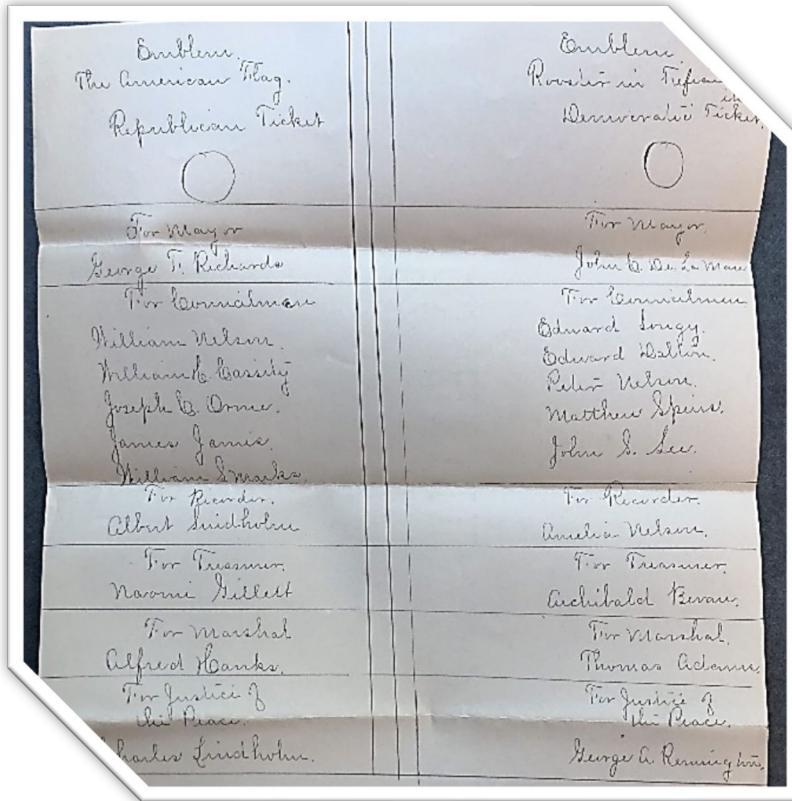 Emblem.
The American Flag.
Republican Ticket
For Mayor
George F. Richards
For Councilmen
William Nelson.
William C. Cassity
Joseph C. Orme.
James Jamis.
William Spiers.
For Recorder.
Albert Lindholm
For Treasurer.
Naomi Gillett
For Marshal
Alfred Hanks.
For Justice of
the Peace.
Charles Lindholm.
Emblem
Rooster in
in
Democratic Ticket.
For Mayor.
John C. De La Mare
For Councilmen
Edward
Edward Dalton.
Peter Nelson.
Matthew Spiers.
John G. See.
For Recorder.
Amelia Nelson.
For Treasurer.
Archibald Bevan.
For Marshal.
Thomas Adams.
For Justice of
the Peace.
George A. Remington.